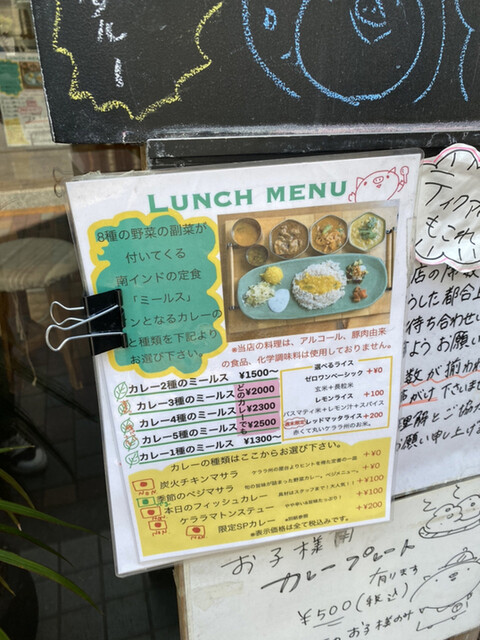 LUNCH MENU
8種の野菜の副菜が
付いてくる
南インドの定食
「ミールス」
ンとなるカレーの
と種類を下記より
お選び下さい。
※当店の料理は、アルコール、豚肉由来
の食品、化学調味料は使用しておりません。
カレー2種のミールス ¥1500〜
カレー3種のミールス ¥2000
カレー4種のミールス ¥2300
カレー5種のミールス ¥2500
カレー1種のミールス ¥1300〜
どのカレーでも
選べるライス
ゼロワンベーシック +¥0
玄米+長粒米
レモンライス +100
バスマティ米+レモン汁+スパイス
レッドマッタライス +200
赤くて丸いケララ州のお米。
カレーの種類はここからお選び下さい。
炭火チキンマサラ +¥0
季節のベジマサラ +¥0
本日のフィッシュカレー +¥100
ケララマトンステュー +¥100
限定SPカレー +¥200
※別紙参照
※表示価格は全て税込みです。
ティクア
もこれ
うした都合上
お願い
数が揃わ
お願い申し上げ
お子様用
カレープレート
有ります
¥500(税込)
お子様のみ